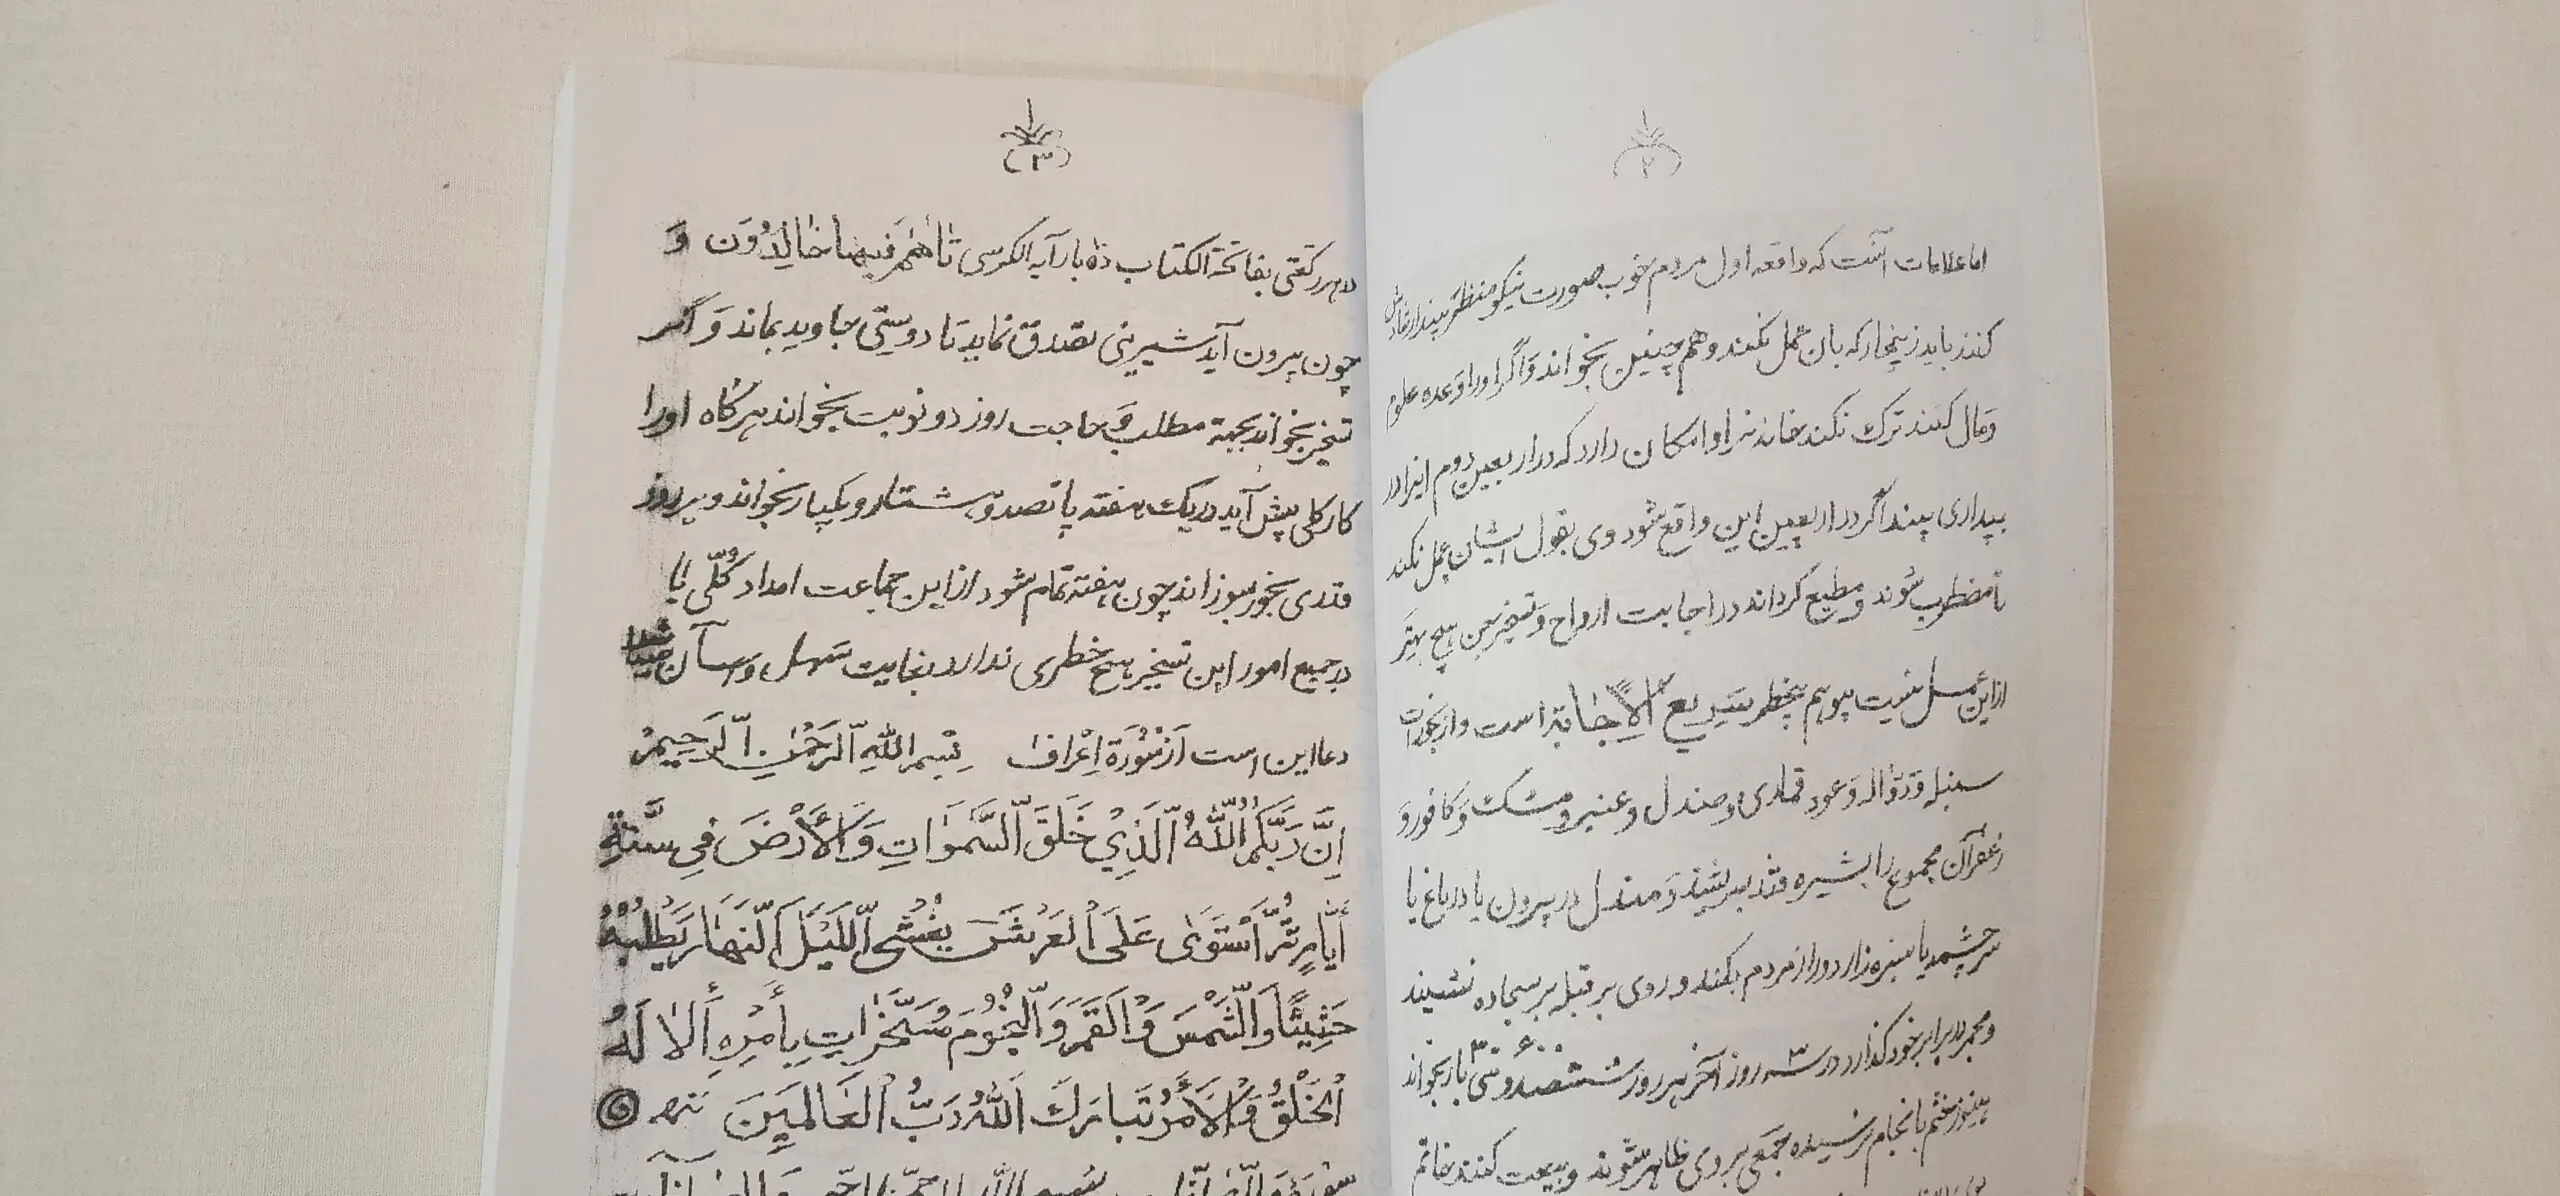 (٢)
اما علامات آنست که واقعه اول مردم خوب صورت نیکو منظر بیند
کنند باید زینهار که بان عمل نکند و هم چنین بخواند وَاگر اورا وَعده علوم
وَمال کنند ترک نکند خانه نرا و امکان دارد که در اربعین دوم اینرا در
بیداری بیند اگر در اربعین این واقع شود وی بقول ایشان عمل نکند
تا مضطرب شوند و مطیع گرداند در اجابت ارواح وَ تسخیر جن هیچ بهتَر
از این عمل نیست بیوهم بیخطر سَریع اْلاِجٰابة است و از بخورات
سنبله و عود قماری و صندل و عنبر و مشک وَ کافور وَ
زعفرآن مجموع را بشیره قند بسرشند وَ مندل در بیرون یا در باغ یا
سر چشمه یا سبزه زار دور از مردم بکند و روی بر قبله بر سجاده نشیند
و مجمر در برابر خود گذارد در سه ٣ روز آخر هر روز ششصد و سی ٦٣٠ بار بخواند
هنوز ختم بانجام نرسیده جمعی بر وی ظاهر شوند و بیعت کنند خاتم
(٣)
در هر رکعتی بفاتحة الکتاب ده بار آیه الکرسی تا هُمْ فیها خٰالِدُوَن وَ
چون بیرون آید شیرینی تصدق نماید تا دوستِی جاوید بماند وَ اگر
تسخیر بخواند بجهة مطلب وَ حاجت روز دو نوبت بخواند هر گاه اورا
کار کلی پیش آید در یک هفته پانصد و شصت و یکبار بخواند و هر روز
قدری بخور بسوزاند چون هفته تمام شود از این جماعت امداد کُلّی یابد
در جمیع امور این تسخیر هیچ خطری ندارد بغایت سَهل وَ آسان
دعا این است اَز سُورَة اِعْرافْ بِسْمِ اللهِ اّلرَحْمٰنِ اّلرَحیِمْ
اِنَّ رَبَّكُمُ اْللّٰهُ اّلَذِيْ خَلَقَ اّلسَّمٰوٰاتِ وَاْلأَرْضَ فىِ سِتَّةِ
أَيّٰامٍ ثُمَّ اَسْتَوىٰ عَلَى اْلعَرْشِ يُغْشىِ اّللَيْلَ اَلّنَهٰارَ يَطْلُبُهُ
حَثِيْثًا وَاّلشَمْسَ وَاْلقَمَرَ وَاّلنُجُوْمَ مُسَخَّرٰاتٍ بِأَمْرِهِ أَلاٰ لَهُ
اْلخَلْقُ وَاْلأَمْرُ تَبارَكَ اَللّٰهُ رَبُّ اْلعٰالَمِيَنَ